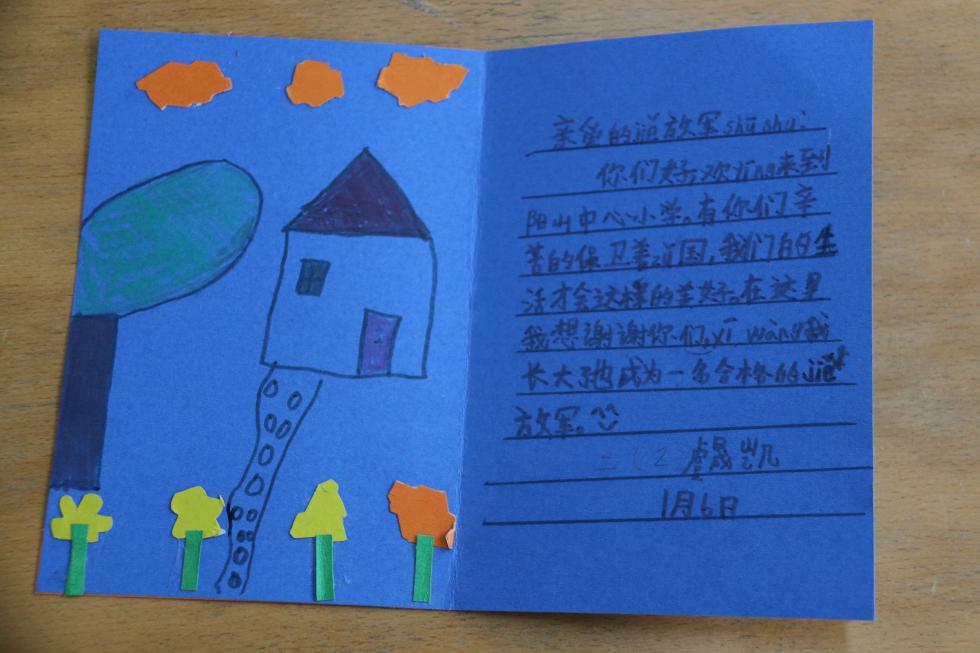 亲爱的jiě放军shū shu:
你们好,欢yíng来到
阳山中心小学。有你们辛
苦的保卫着zǔ国,我们的生
活才会这样的美好。在这里
我想谢谢你们,xī wàng我
长大了也成为一名合格的jiě
放军。
二(2) 晟凯
1月6日